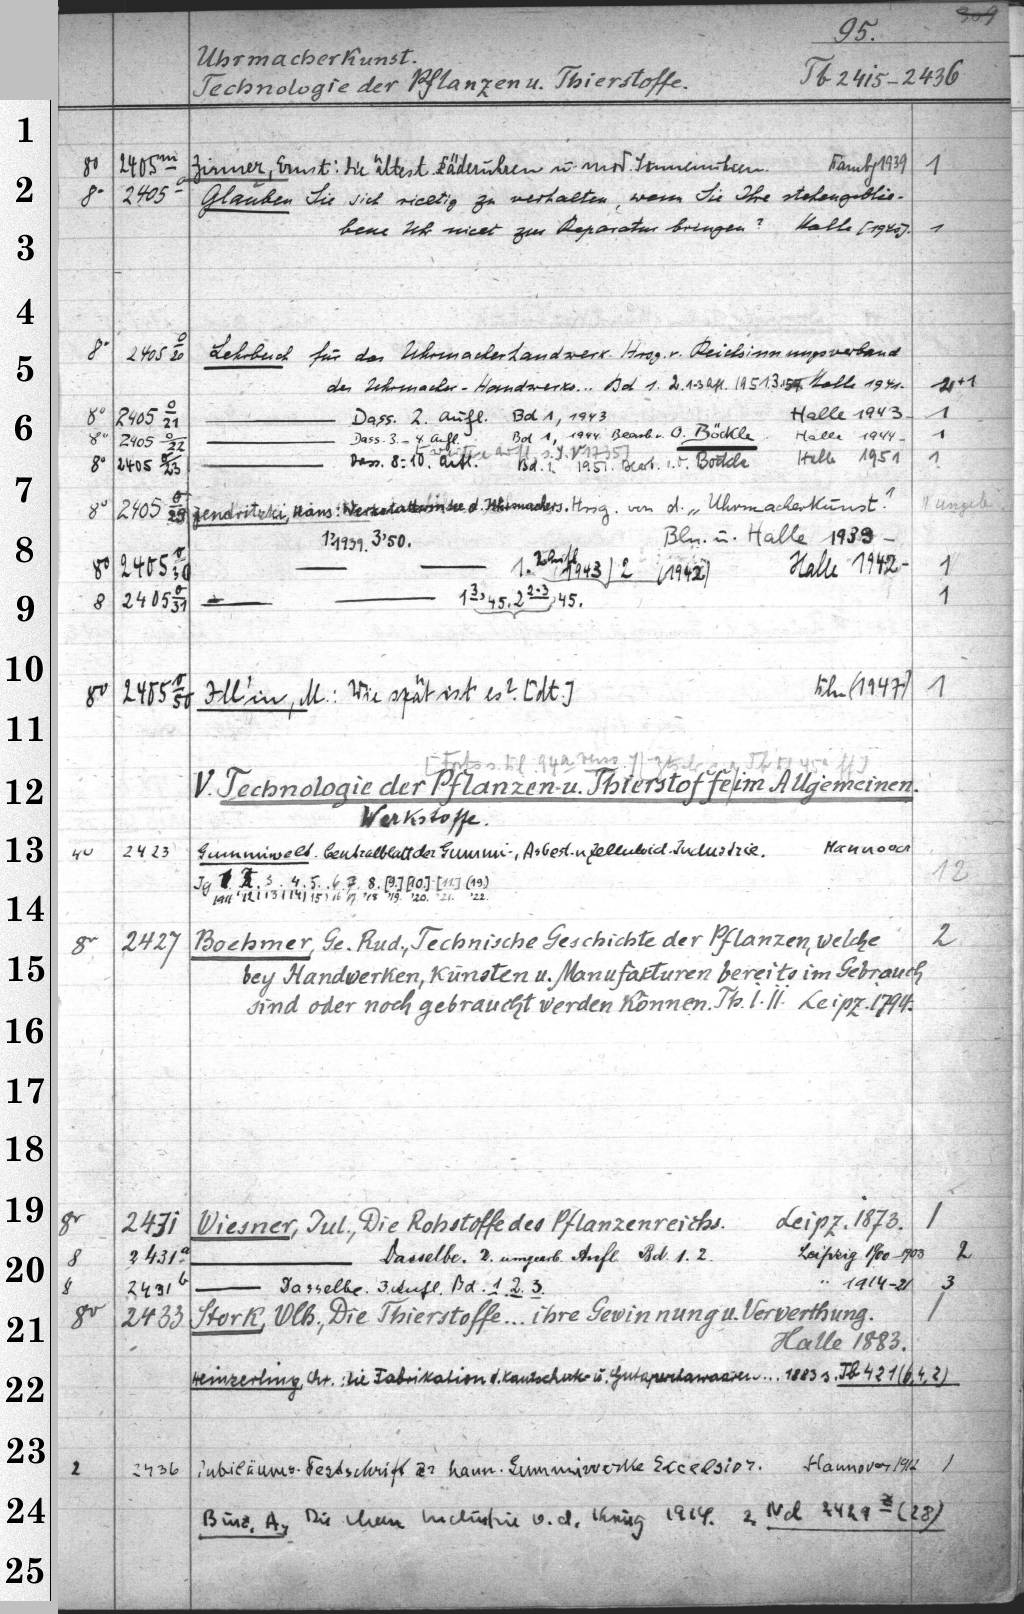 95.
Uhrmacherkunst.
Technologie der Pflanzen u. Thierstoffe. Tb 2415-2436
1
8° 2405 m Zinner, Ernst: Die ältest. Räderuhren u. mod. Sonnenuhren. Bamby 1939 1
2
8° 2405 Glauben Sie sich richtig zu verhalten, wenn Sie Ihre stehengeblie-
bene Uhr nicht zur Reparatur bringen? Halle [1940]. 1
3
4
8° 2405 o/20 Lehrbuch für das Uhrmacherhandwerk. Hrsg. v. Reichsinnungsverband
5
des Uhrmacher-Handwerks... Bd 1. 2. Halle 1941.
8° 2405 o/21 Dass. 2. Aufl. Bd 1, 1943 Halle 1943- 1
6
8° 2405 o/22 Dass. 3.-4. Aufl. Bd 1, 1944 Bearb. v. O. Böckle Halle 1944- 1
8° 2405 o/23 Dass. 8.-10. Aufl. Bd. 1. 1951. Bearb. v. O. Böckle Halle 1951 1
7
8° 2405 o/29 Jendritzki, Hans: Werkstattwinke d. Uhrmachers. Hrsg. von d. „Uhrmacherkunst"
1² 1939. 3 50. Bln. u. Halle 1939-
8
8° 2405 o/30 1. 1943) 2 (1942) Halle 1942- 1
8 2405 o/31 1 3, 45. 2 2.3 45. 1
9
10
8° 2405 o/50 Il'in, M.: Wie spät ist es? [dt.] Bln (1947) 1
11
12
V. Technologie der Pflanzen- u. Thierstoffe/im Allgemeinen.
Werkstoffe.
13
4° 2423 Gummiwelt. Centralblatt der Gummi-, Asbest- u. Zelluloid-Industrie. Hannover
12
Jg 1. 2. 3. 4. 5. 6. 7. 8. [9.] [10.] [11.] (19.)
1911 '12 '13 '14 '15 '16 '17 '18 '19. '20. '21. '22.
14
8° 2427 Boehmer, Ge. Rud., Technische Geschichte der Pflanzen, welche 2
15
bey Handwerken, Künsten u. Manufakturen bereits im Gebrauch
sind oder noch gebraucht werden können. Th. I. II. Leipz. 1794.
16
17
18
19
8° 2431 Wiesner, Jul., Die Rohstoffe des Pflanzenreichs. Leipz. 1873. 1
8 2431 a Dasselbe. 2. umgearb. Aufl. Bd. 1. 2. Leipzig 1900-1903 2
20
8 2431 b Dasselbe. 3. Aufl. Bd. 1. 2. 3. " 1914-21 3
8° 2433 Stork, Wlh., Die Thierstoffe... ihre Gewinnung u. Verwerthung. 1
21
Halle 1883.
22
Heinzerling, Chr.: Die Fabrikation d. Kautschuk- u. Guttaperchawaaren... 1883 s. Tb 421 (6,4,2)
23
2 2436 Jubiläums-Festschrift d. hann. Gummiwerke Excelsior. Hannover 1912 1
24
Binz, A., Die chem Industrie u. d. Krieg 1914. s. Nd 2429 z (28)
25